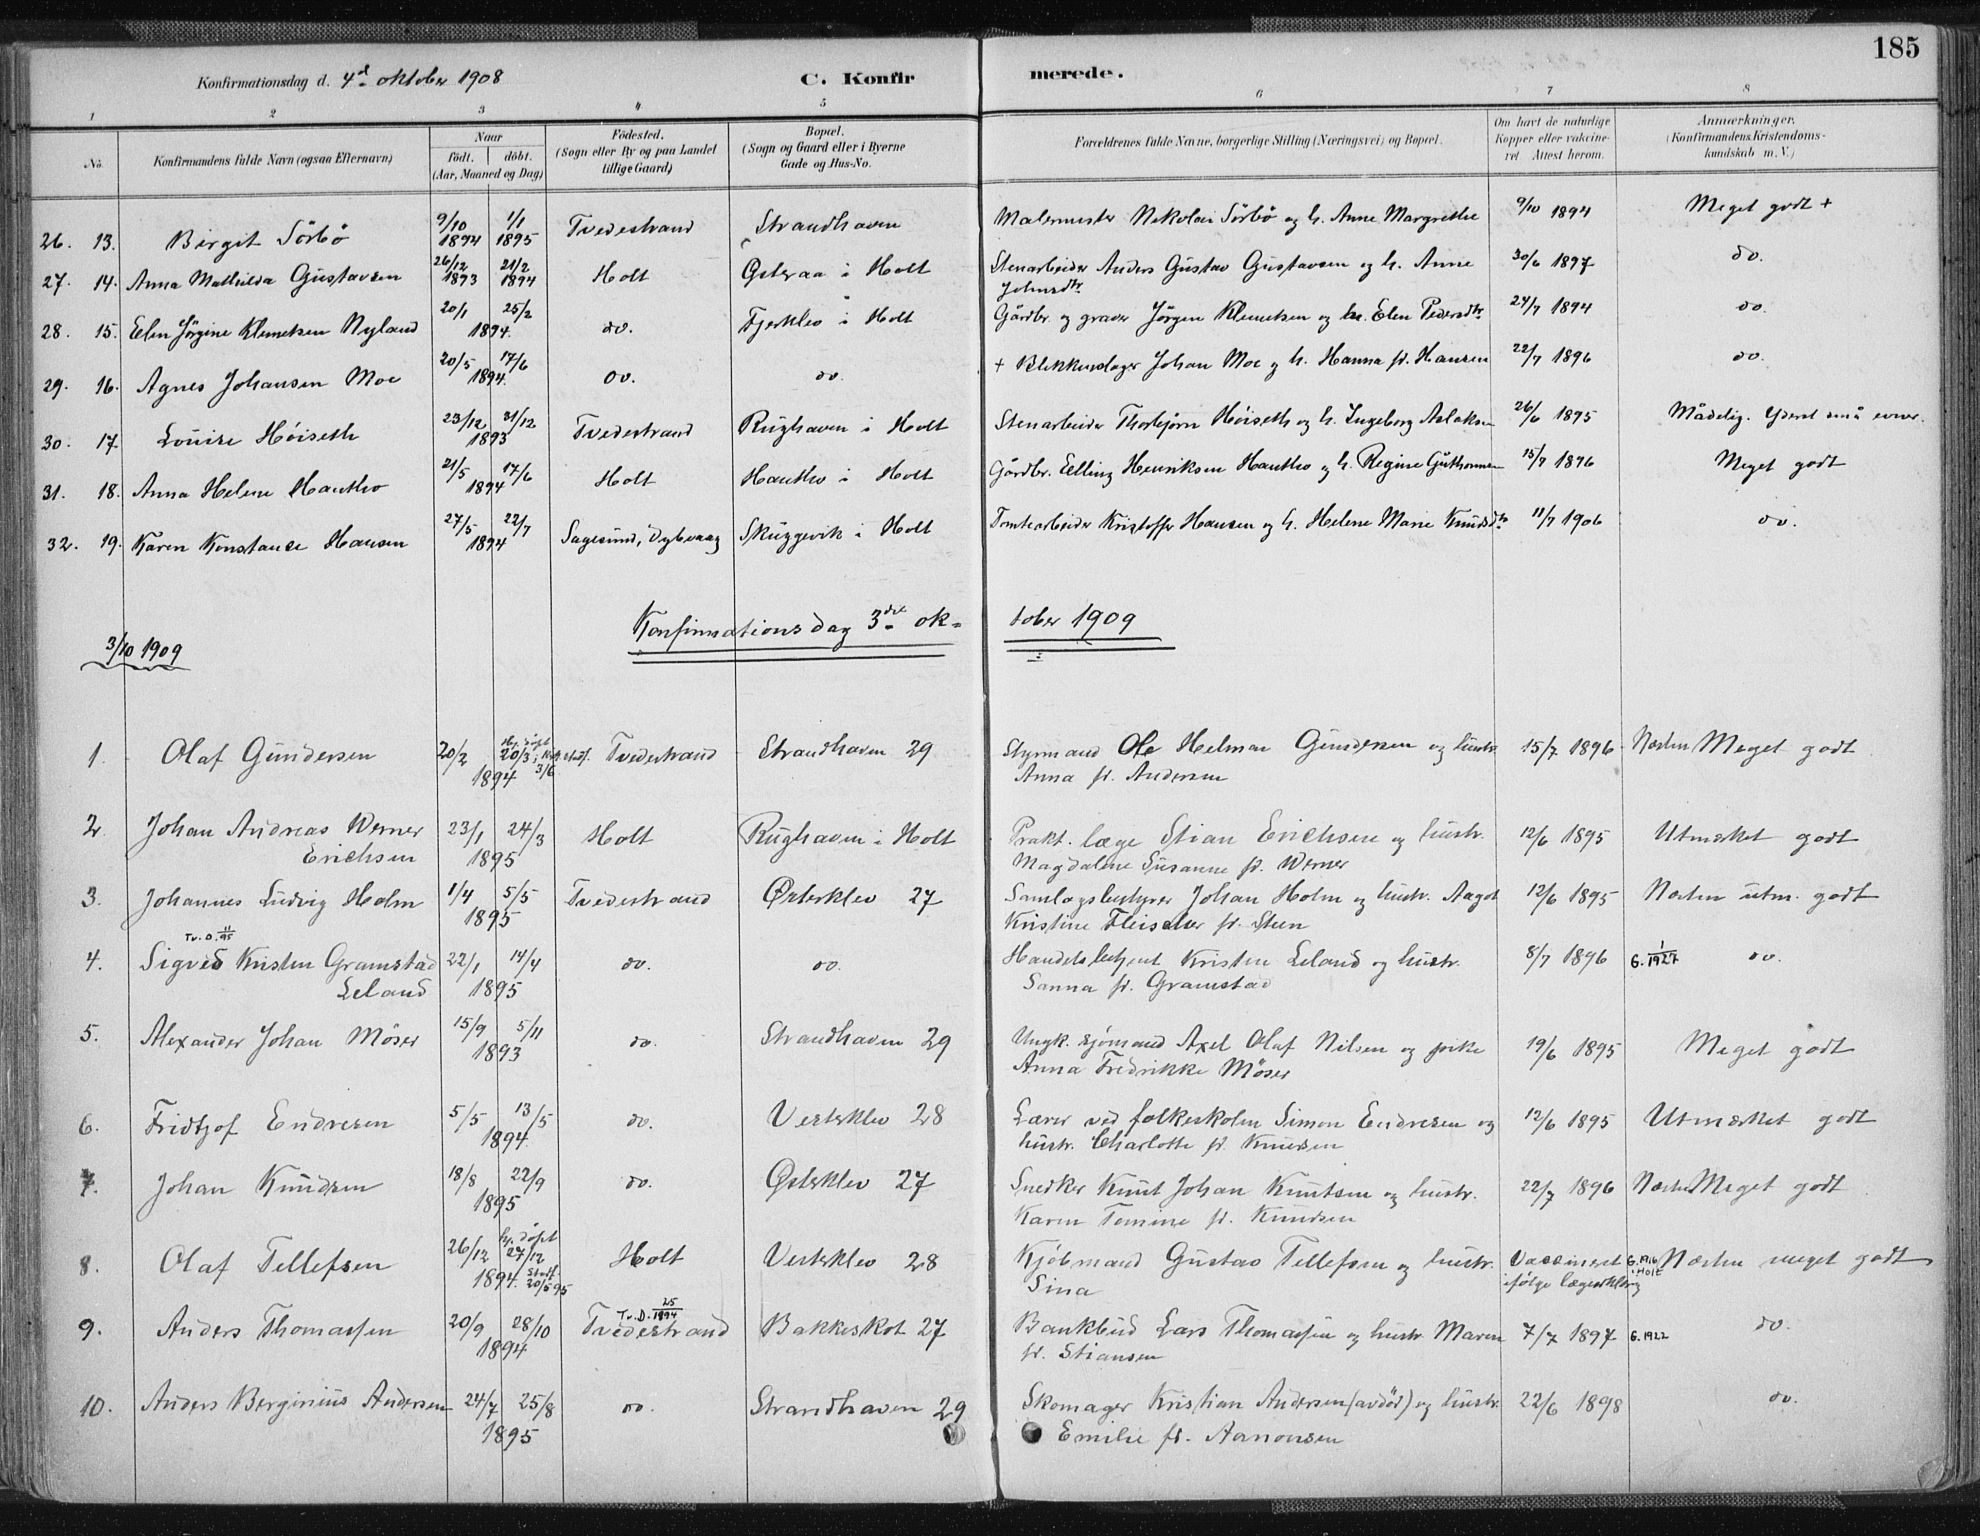 185
Konfirmationsdag d. 4d oktober 1908 C. Konfirmerede.
1 2 3 4 5 6 7 8
No. Konfirmandens fulde Navn (ogsaa Efternavn) Naar födt. döbt. (Aar, Maaned og Dag) Födested. (Sogn eller By og paa Landet tillige Gaard) Bopæl. (Sogn og Gaard eller i Byerne Gade og Hus-No. Forældrenes fulde Navne, borgerlige Stilling (Næringsvei) og Bopæl. Om havt de naturlige Kopper eller vakcineret. Attest herom. Anmærkninger. (Konfirmandens Kristendomskundskab m. V.)
26. 13. Birgit Sörbö 9/10 1894 1/1 1895 Tvedestrand Strandhaven Malermester Nikolai Sörbö og h. Anne Margrethe 9/10 1894 Meget godt +
27. 14. Anna Mathilda Gustavsen 26/12 1893 21/2 1894 Holt Østeraa i Holt Stenarbeider Anders Gustav Gustavsen og h. Anne Johnsdtr 30/6 1897 do.
28. 15. Elen Jörgine Klemetsen Nyland 20/1 25/2 1894 do. Fjerklev i Holt Gårdbr. og graver Jörgen Klemetsen og h. Elen Pedersdtr. 24/7 1894 do.
29. 16. Agnes Johansen Moe 20/5 17/6 1894. do. do. + Blikkenslager Johan Moe og h. Hanna f. Hansen 22/7 1896 do.
30. 17. Louise Höiseth 23/12 31/12 1893 Tvedestrand Rughaven i Holt Stenarbeider Thorbjørn Höiseth og h. Ingeborg Aslaksen 26/6 1895 Mådelig. Yderst små evner.
31. 18. Anna Helene Hantho 21/5 17/6 1894 Holt Hantho i Holt Gårdbr. Elling Henriksen Hantho og h. Regine Guthormsen 15/7 1896 Meget godt
32. 19. Karen Konstance Hansen 27/5 22/7 1894 Sagesund, Dybvaag Skuggevik i Holt Tomtearbeider Kristoffer Hansen og h. Helene Marie Knudsdtr 11/7 1906 do.
3/10 1909 Konfirmationsdag 3die oktober 1909
1. Olaf Gundersen 20/2 hj. döpt 20/3, 3/6 1894 Tvedestrand Strandhaven 29 Styrmand Ole Helmer Gundersen og hustr. 15/7 1896 Næsten Meget godt
Anna f. Andersen
2. Johan Andreas Werner 23/1 24/3 Holt Rughaven i Holt Prakt. læge Stian Erichsen og hustr. 12/6 1895 Utmerket godt
Erichsen 1895 Magdalene Susanne f. Werner
3. Johannes Ludvig Holm 1/4 5/5 Tvedestrand Østerklev 27 Samlagsbestyrer Johan Holm og hustr. Aagot 12/6 1895 Næsten utm. godt
1895 Kristine Fleischer f. Steen
Tv. D. 11/95
4. Sigved Kristen Gramstad 22/1 14/4 do. do. Handelsbetjent Kristen Leland og hustr. 8/7 1896 G. 1/1927 do.
Leland 1895 Sanna f. Gramstad
5. Alexander Johan Möser 15/9 5/11 do. Strandhaven 29 Ungk. sjömand Axel Olaf Nilsen og pike 19/6 1895 Meget godt
1893 Anna Fredrikke Möser
6. Fridtjof Endresen 5/5 13/5 do. Vesterklev 28 Lærer ved folkeskolen Simon Endresen og 12/6 1895 Utmærket godt
1894. hustr. Charlotte f. Knudsen
7. Johan Knudsen 18/8 22/9 do. Østerklev 27 Snedker Knut Johan Knutsen og hustr. 22/7 1896 Næsten Meget godt
1895 Karen Tomine f. Knudsen
8. Olaf Tellefsen 26/12 hj. döpt 27/12 Holt Vesterklev 28 Kjöbmand Gustav Tellefsen og hustr. Vaccineret G. 1916 i Holt Næsten meget godt
1894. Stadf. 20/5 95 Sina ifølge lægeerklæring
Tv. D. 25/1894
9. Anders Thomassen 20/9 28/10 Tvedestrand Bakkeskot 27 Bankbud Lars Thomassen og hustr. Maren 7/7 1897 G. 1922 do.
1894 f. Stiansen
10. Anders Berginius Andersen 24/7 25/8 do. Strandhaven 29 Skomager Kristian Andersen (avdöd) og hustr. 22/6 1898 do.
1895 Emilie f. Aanonsen